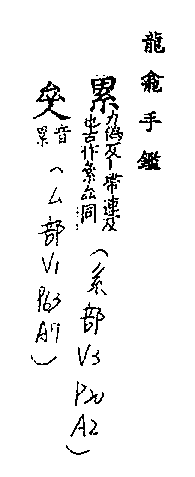 龍龕手鑑
累力偽反丨帶連及也古作絫二同(糸部V3P20A2)
叁音累(厶部V1P63A7)